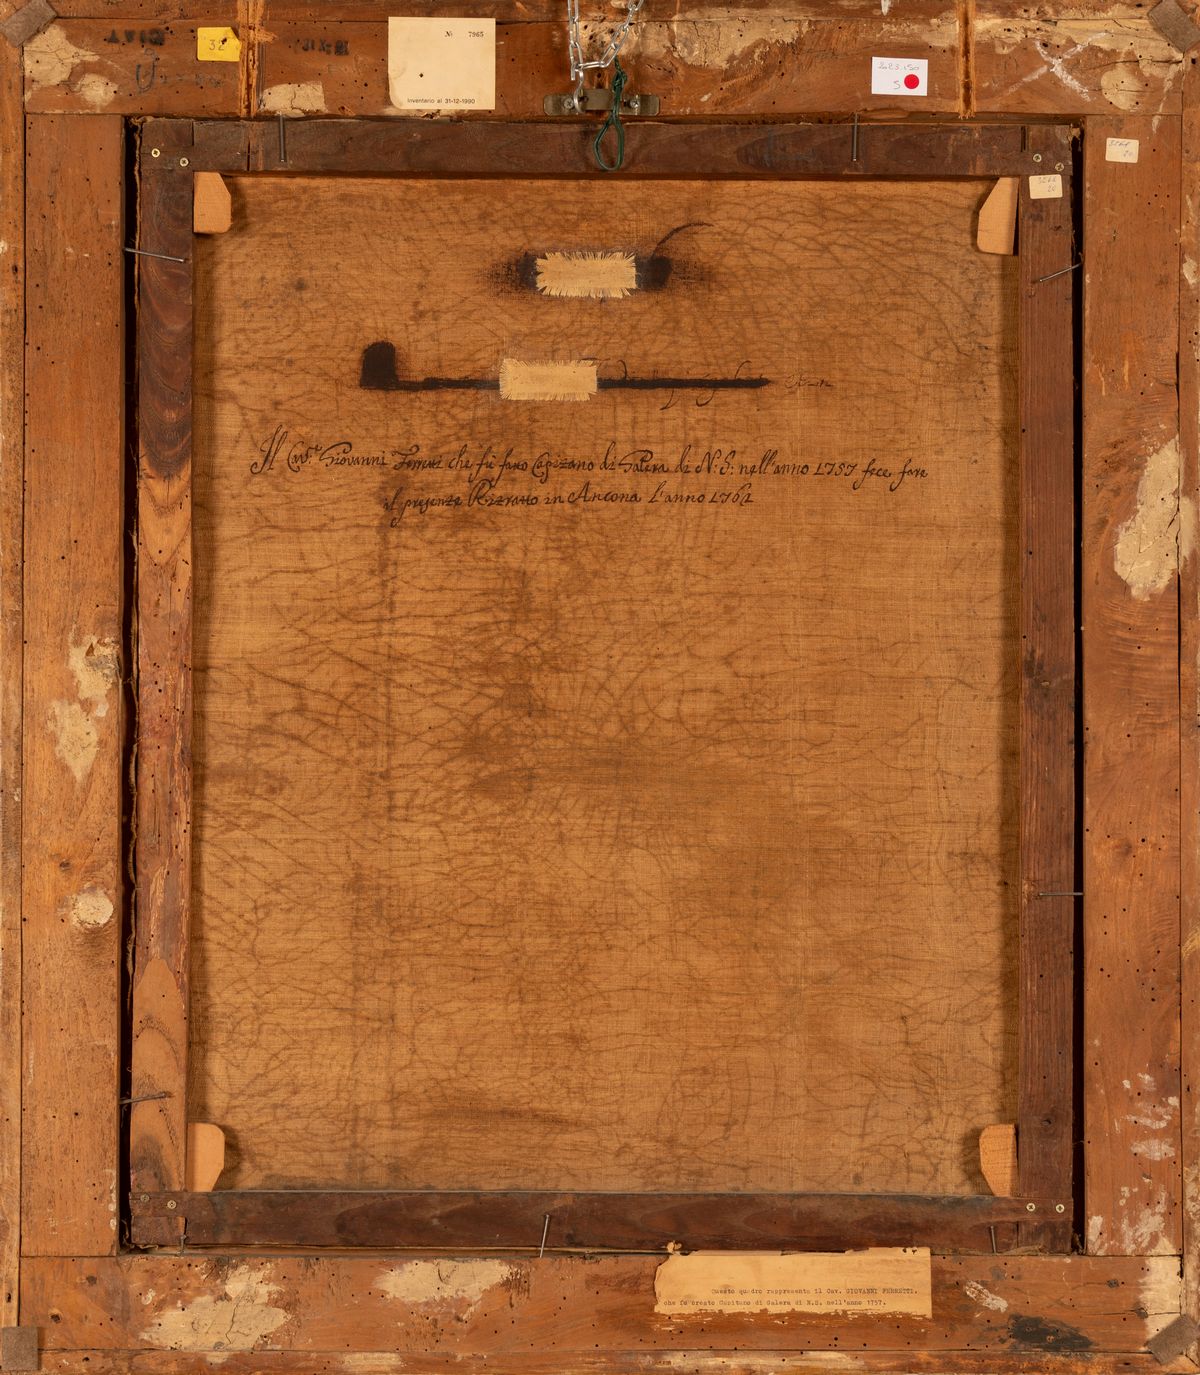 32
№ 7965
Inventario al 31-12-1990
S
Il Cav.e Giovanni Ferreti che fù fatto Capitano di Galera di N: S: nell'anno 1757 fece fare
il presente Ritratto in Ancona l'anno 1762
Questo quadro rappresenta il Cav. GIOVANNI FERRETTI.
che fu creato Capitano di Galera di N.S. nell'anno 1757.